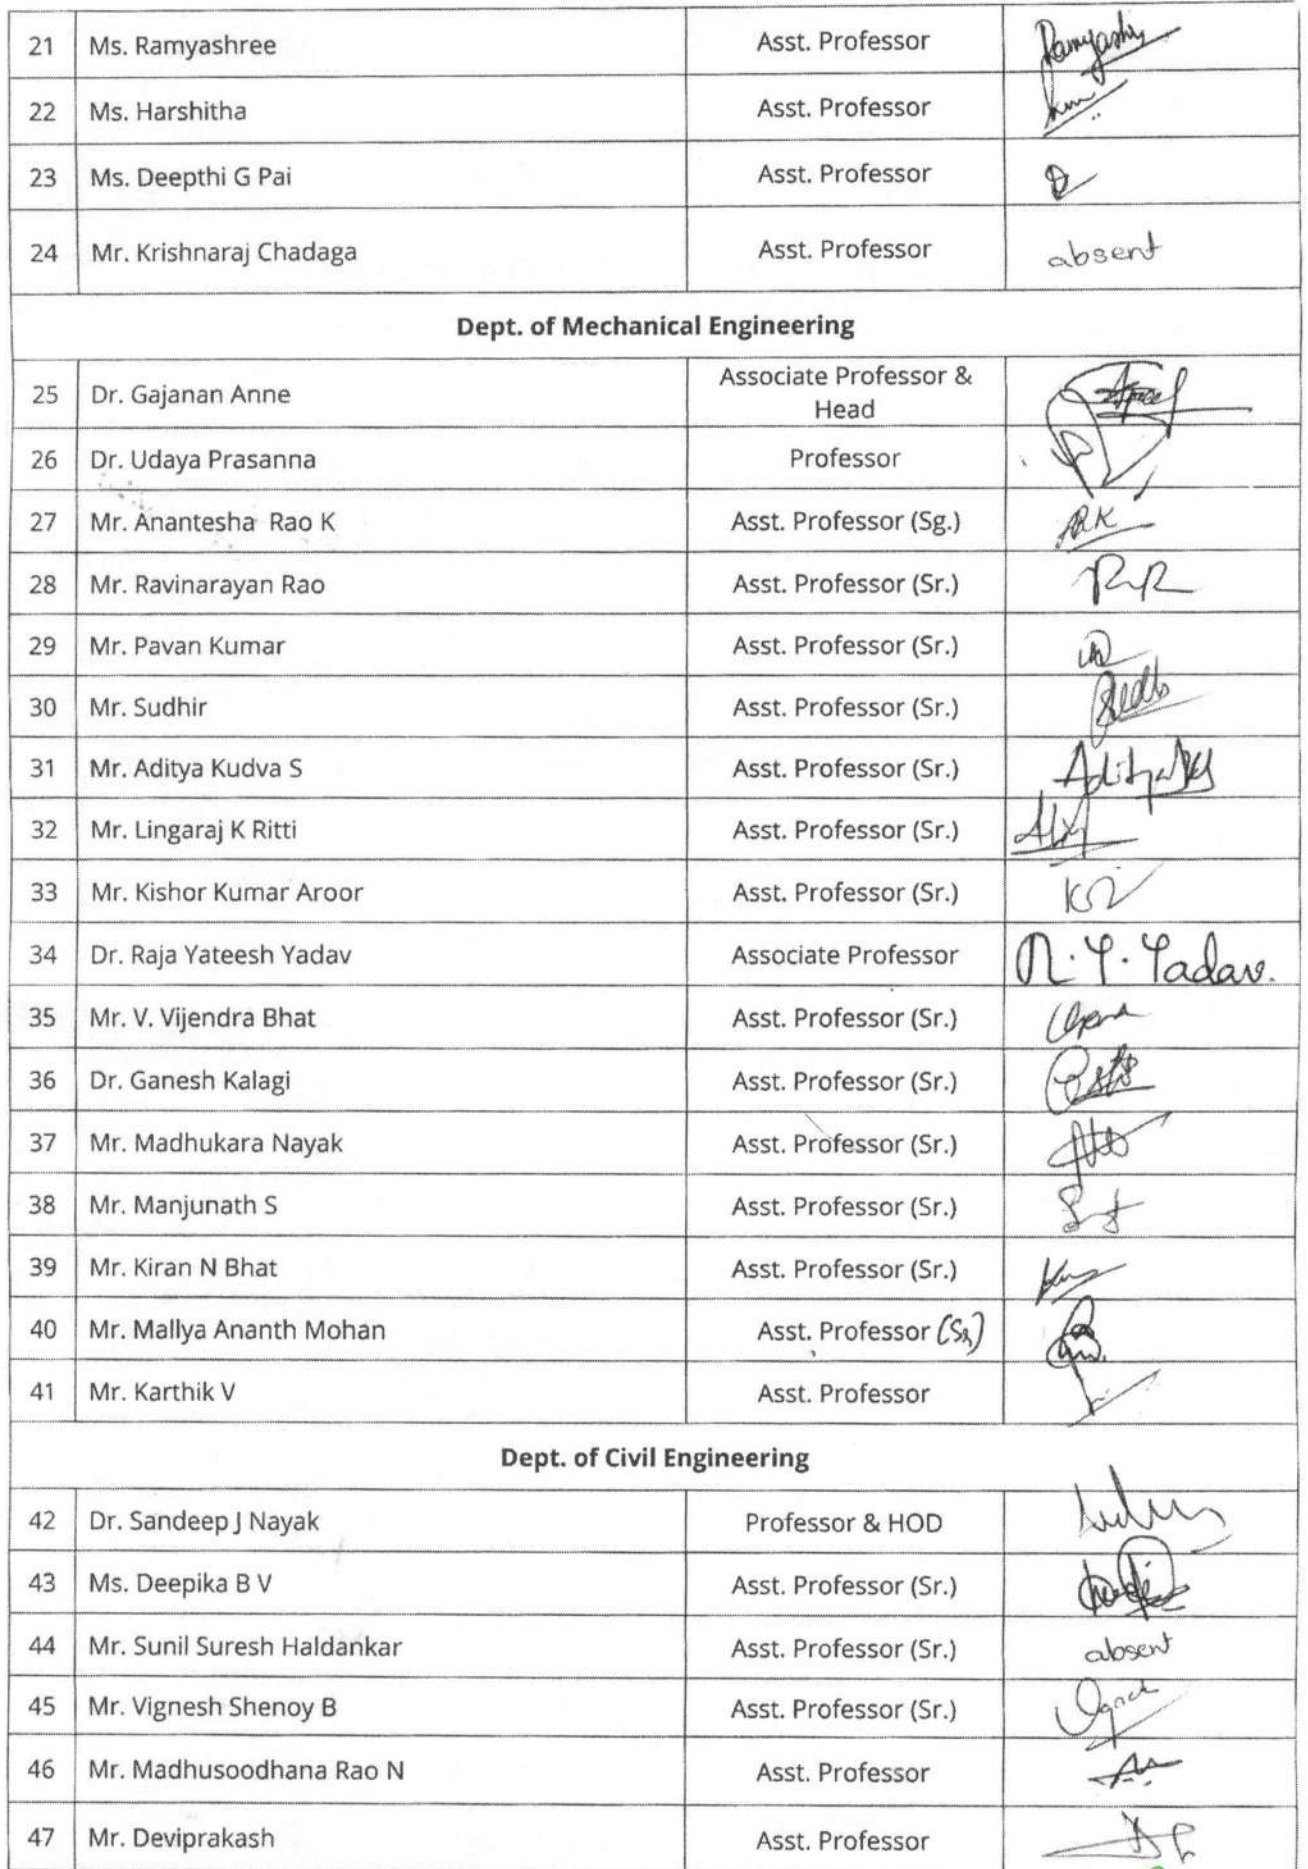 21 Ms. Ramyashree Asst. Professor
22 Ms. Harshitha Asst. Professor
23 Ms. Deepthi G Pai Asst. Professor
24 Mr. Krishnaraj Chadaga Asst. Professor absent
Dept. of Mechanical Engineering
25 Dr. Gajanan Anne Associate Professor &
Head
26 Dr. Udaya Prasanna Professor
27 Mr. Anantesha Rao K Asst. Professor (Sg.) ARK
28 Mr. Ravinarayan Rao Asst. Professor (Sr.)
29 Mr. Pavan Kumar Asst. Professor (Sr.)
30 Mr. Sudhir Asst. Professor (Sr.)
31 Mr. Aditya Kudva S Asst. Professor (Sr.)
32 Mr. Lingaraj K Ritti Asst. Professor (Sr.)
33 Mr. Kishor Kumar Aroor Asst. Professor (Sr.)
34 Dr. Raja Yateesh Yadav Associate Professor R.Y. Yadav.
35 Mr. V. Vijendra Bhat Asst. Professor (Sr.)
36 Dr. Ganesh Kalagi Asst. Professor (Sr.)
37 Mr. Madhukara Nayak Asst. Professor (Sr.)
38 Mr. Manjunath S Asst. Professor (Sr.)
39 Mr. Kiran N Bhat Asst. Professor (Sr.)
40 Mr. Mallya Ananth Mohan Asst. Professor (Sr)
41 Mr. Karthik V Asst. Professor
Dept. of Civil Engineering
42 Dr. Sandeep J Nayak Professor & HOD
43 Ms. Deepika B V Asst. Professor (Sr.)
44 Mr. Sunil Suresh Haldankar Asst. Professor (Sr.) absent
45 Mr. Vignesh Shenoy B Asst. Professor (Sr.)
46 Mr. Madhusoodhana Rao N Asst. Professor
47 Mr. Deviprakash Asst. Professor